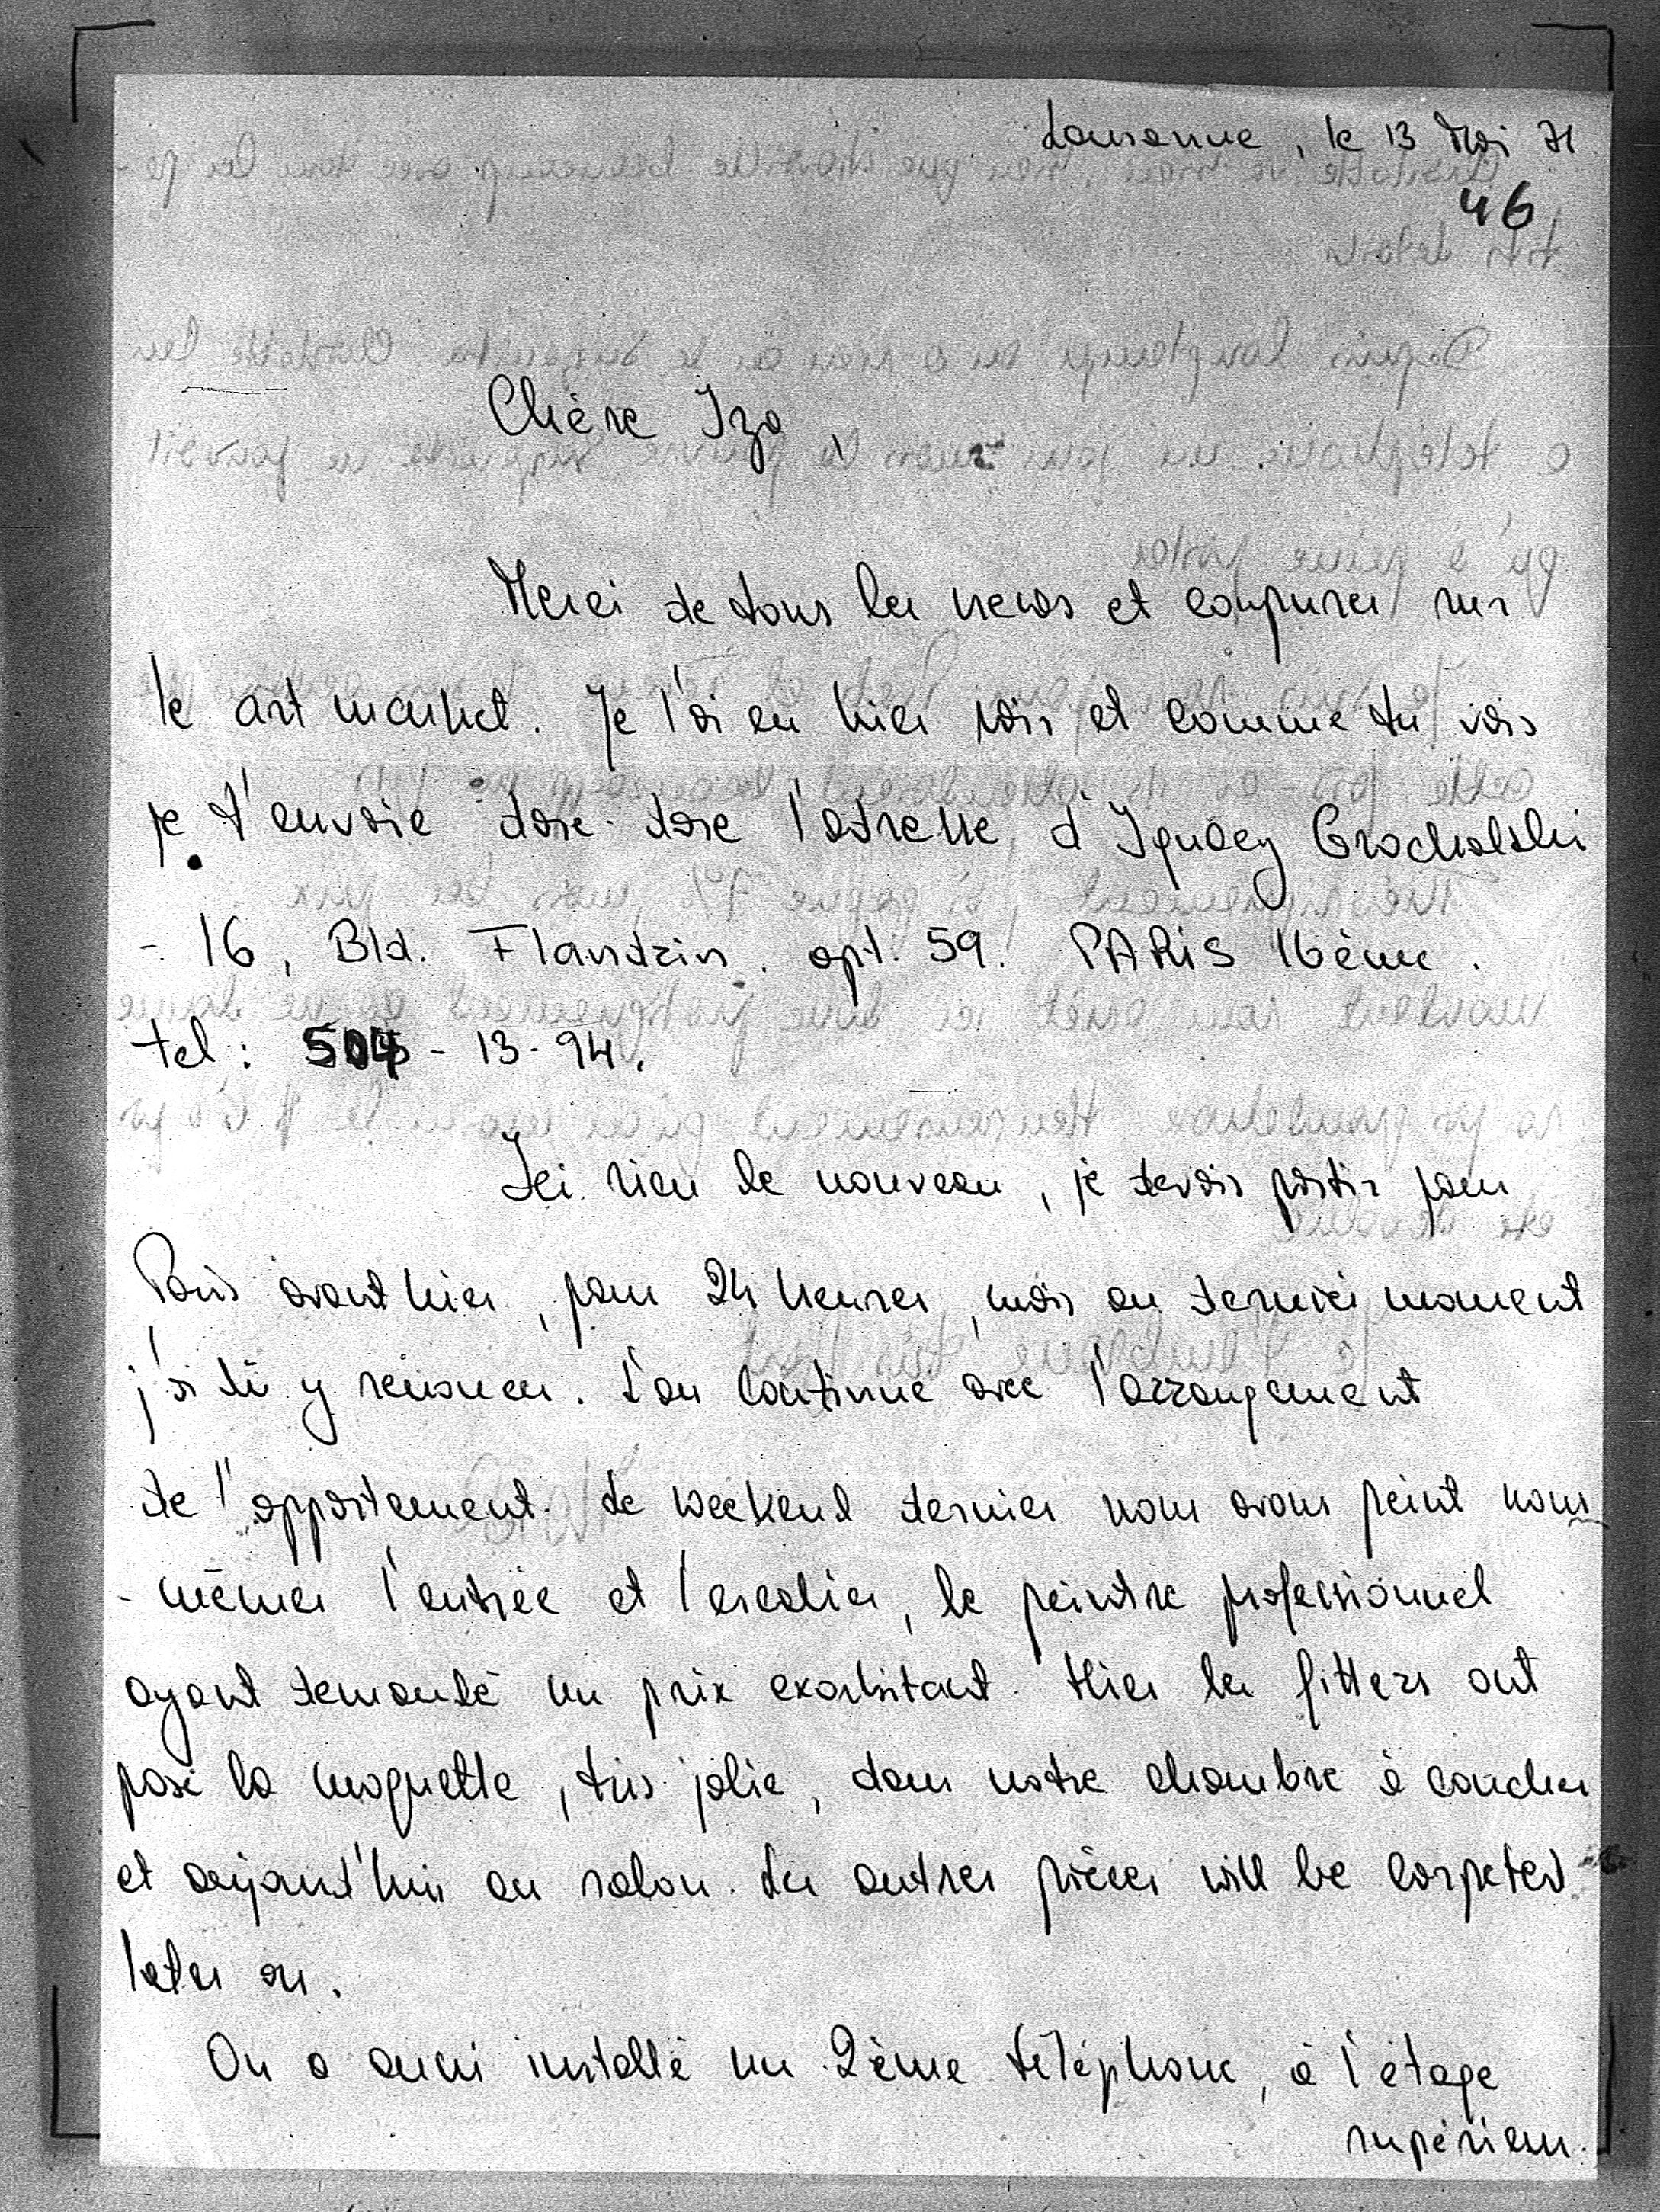 Lausanne, le 13 Mai 71
46
Chère Iza,
Merci de tous les news et coupures sur
le art market. Je l'ai eu hier soir et comme tu vois
je t'envoie dare-dare l'adresse d'Ignacy Grocholski
- 16, Bld. Flandrin. apt. 59. PARIS 16ème.
tel: 504 - 13-94.
Ici rien de nouveau, je devais partir pour
Paris avant hier, pour 24 heures, mais au dernier moment
j'ai dû y renoncer. L'on continue avec l'arrangement
de l'appartement. Le weekend dernier nous avons peint nous
-mêmes l'entrée et l'escalier, le peintre professionnel
ayant demandé un prix exorbitant. Hier les fitters ont
posé la moquette, très jolie, dans notre chambre à coucher
et aujourd'hui au salon. Les autres pièces will be carpeted
later on.
On a aussi installé un 2ème téléphone, à l'étage
supérieur.